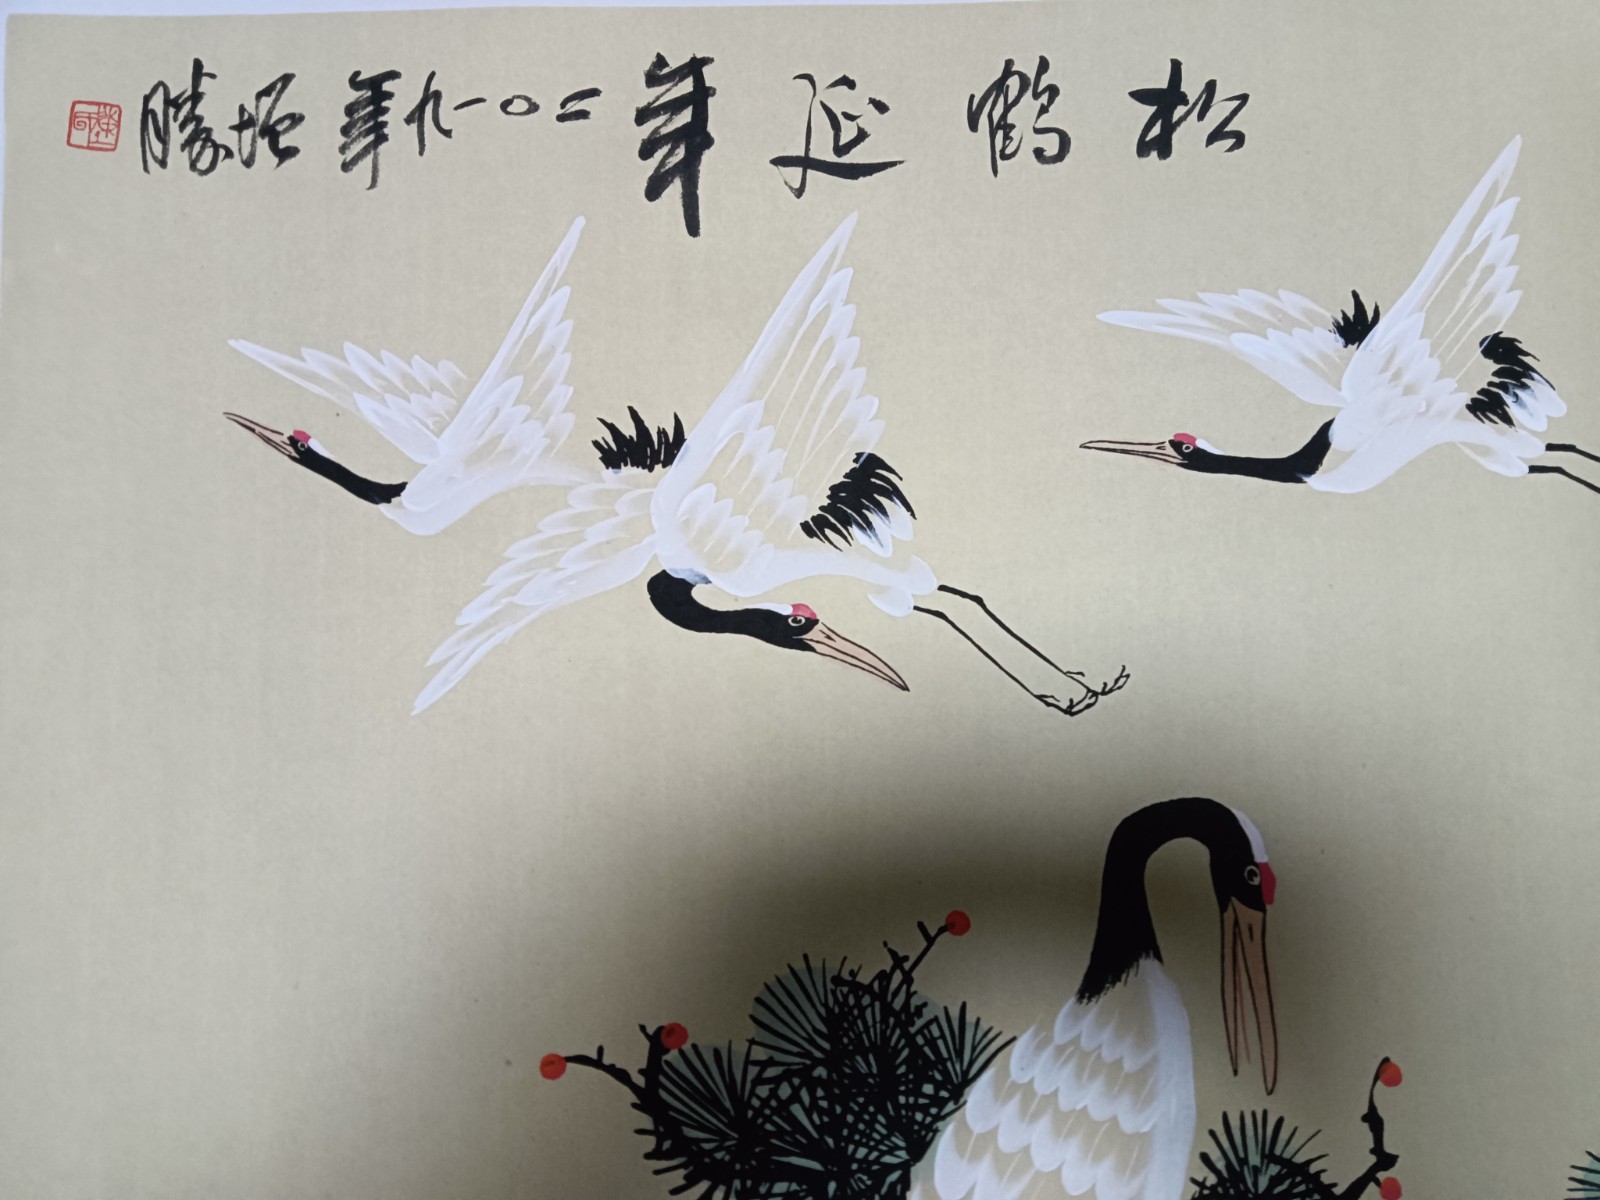 松鹤延年二〇一九年垣勝